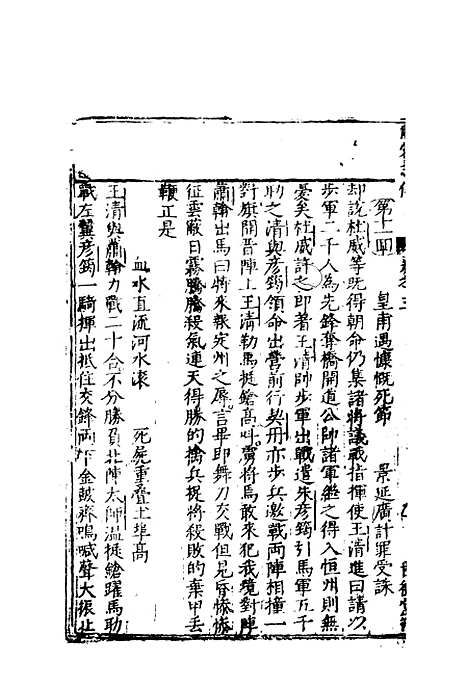 第十一回
皇甫遇慷慨死節　景延廣計罪受誅
却說杜威等既得朝命仍集諸將議戰指揮使王清進曰請以
步軍二千人為先鋒奪橋開道公帥諸軍繼之得入恒州則無
憂矣杜威許之即著王清帥步軍出戰遣朱彦筠引馬軍五千
助之清與彦筠領命出營前行契丹亦步兵邀戰兩陣相撞一
對旗開晋陣上王清勒馬挺鎗高叫虜將馬敢來犯我境對陣
蕭翰出馬曰將來報定州之辱言畢即舞刀交戰但見昏慘慘
征雲蔽日霧騰騰殺氣連天得勝的擒兵捉將殺敗的棄甲丢
鞭正是
血水直流河水滾　死屍重疊土埠高
王清與蕭翰力戰二十合不分勝負北陣太師溫挺鎗躍馬助
戰左翼彦筠一騎揮出抵住交鋒兩下金鼓齊鳴喊聲大振止